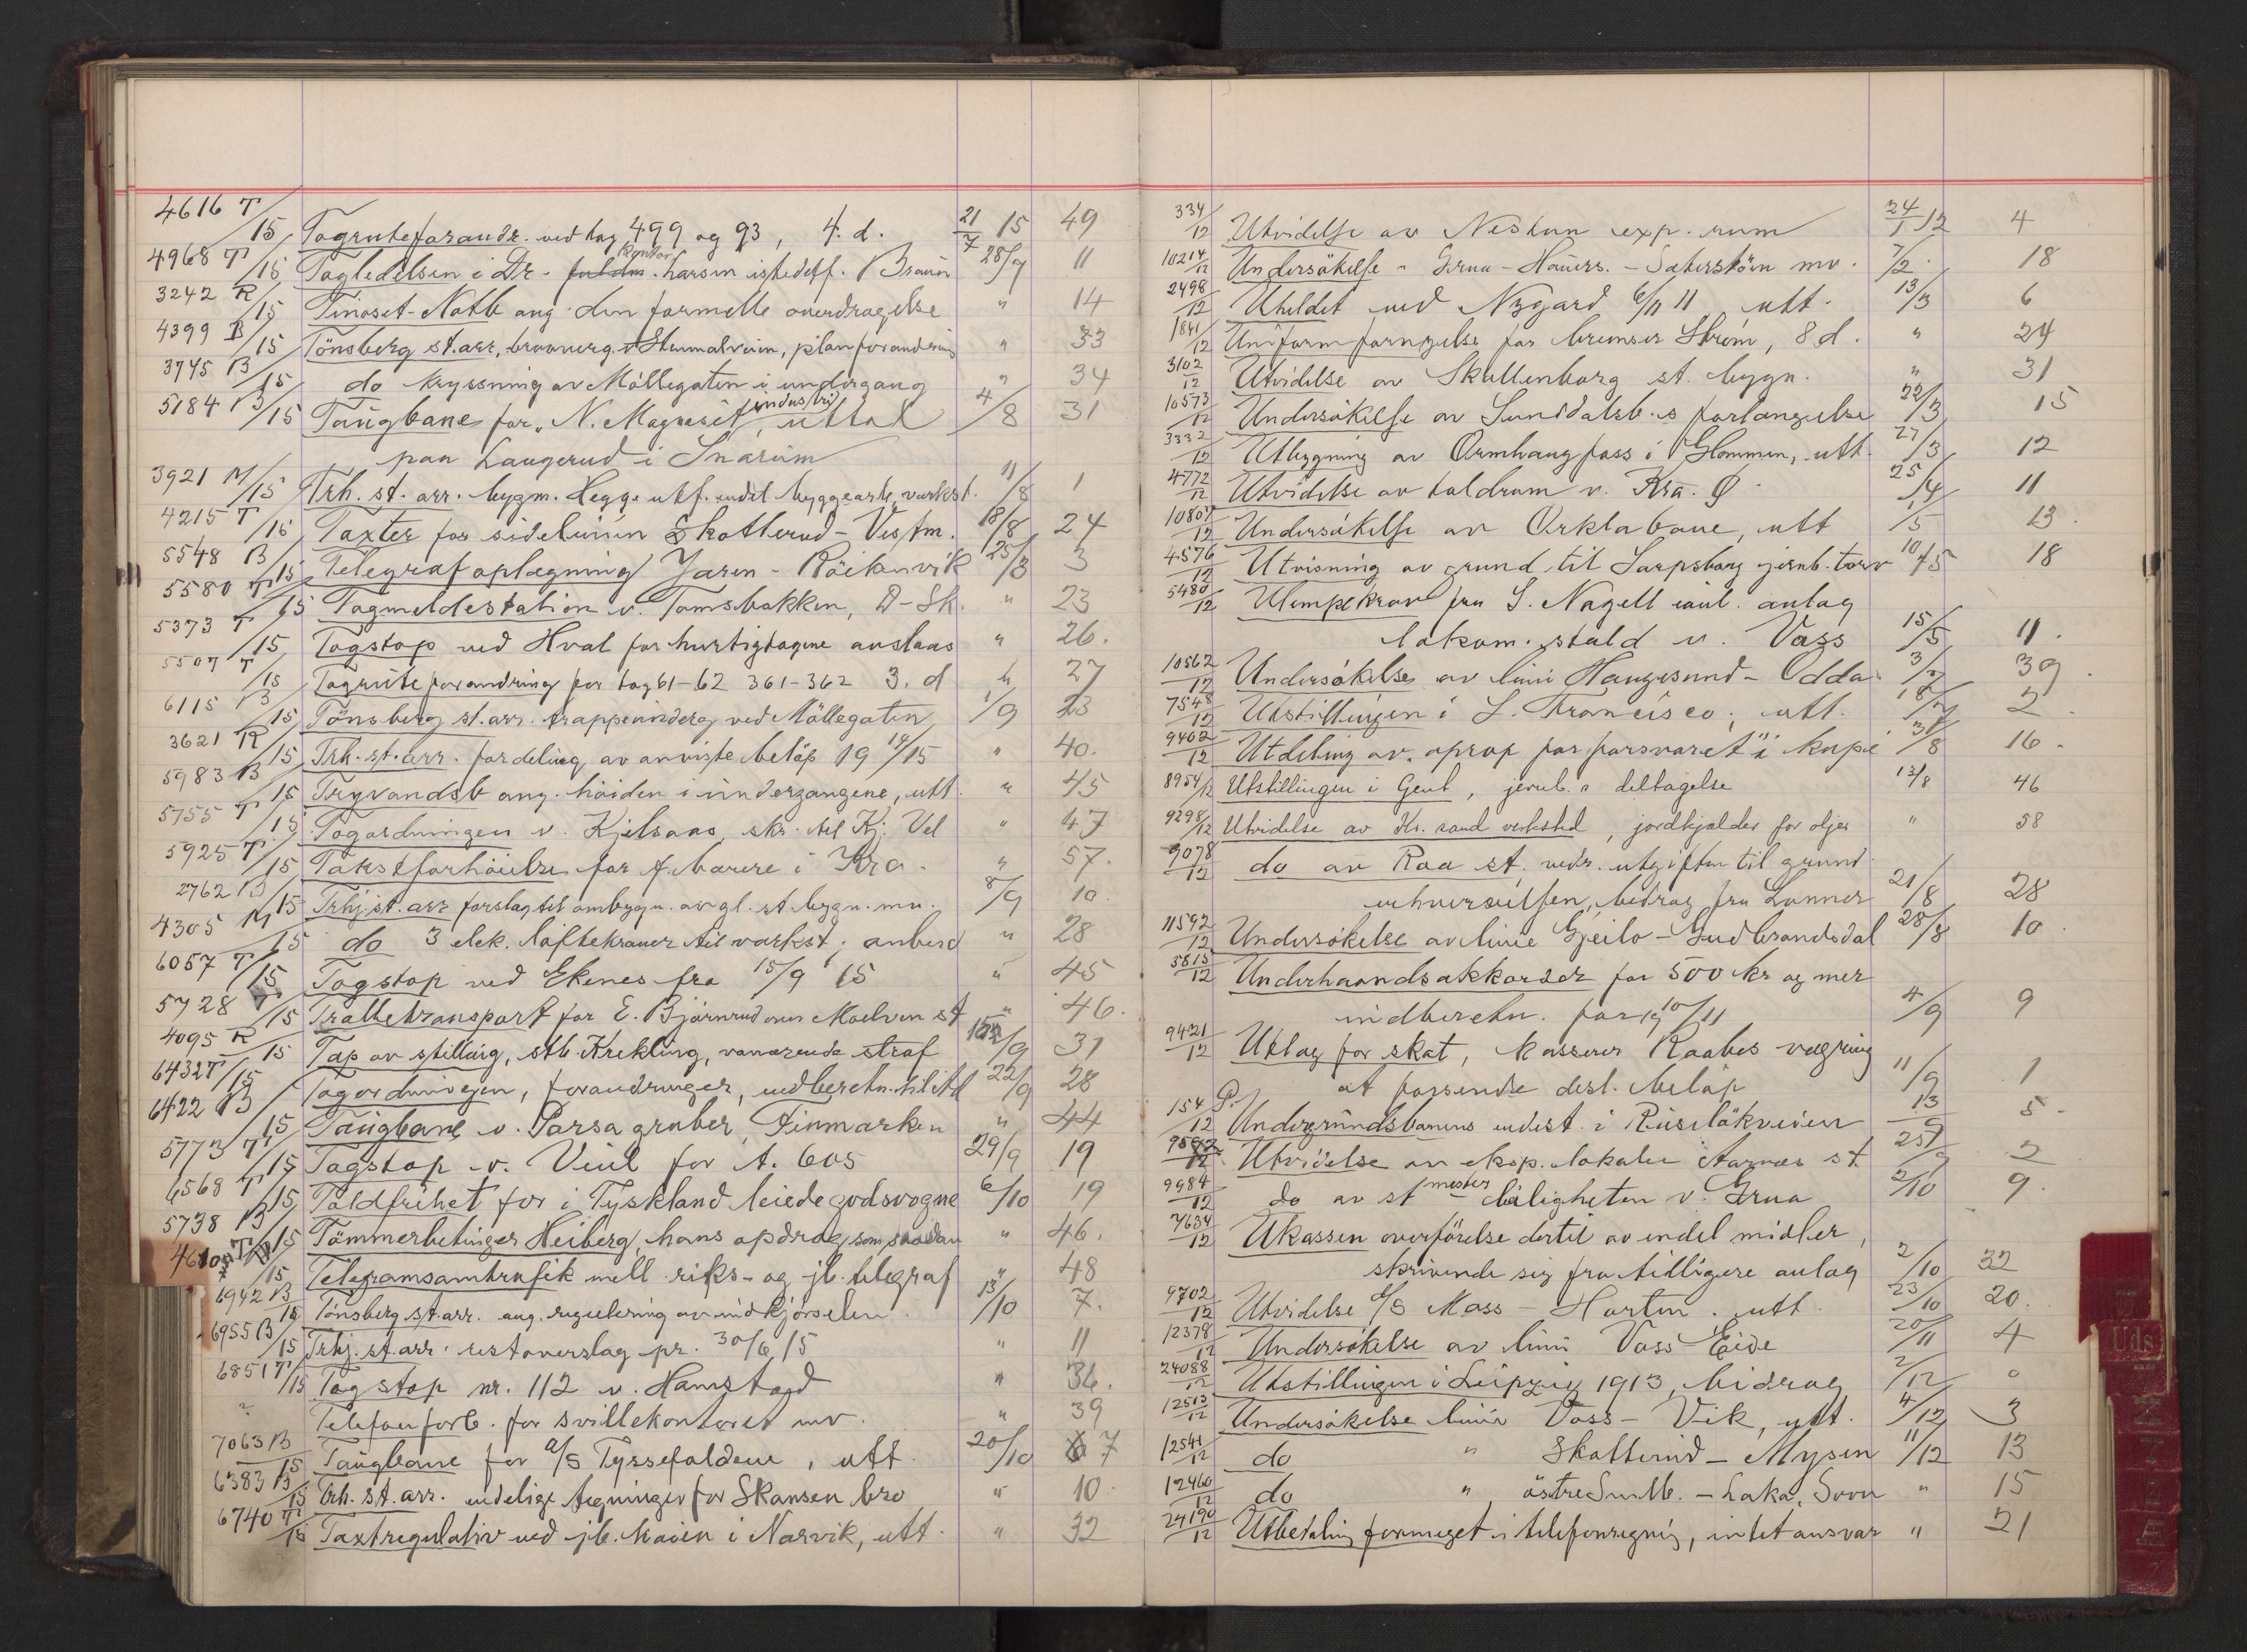 4616 T/15 Togruteforandr. ved tog 499 og 93, 4. d. 21/7 15 49
4968 T/15 Togledelsen i Dr. kontor. Larsen istedetf. Braün 28/7 11
3242 R/15 Tinoset-Notb ang. den formelle overdragelse " 14
4399 B/15 Tönsberg st.arr, broovergv Stenmalveien, planforandring " 33
3745 B/15 do kryssning av Möllegaten i undergang " 34
5184 B/15 Taugbane for „N. Magnesit industri", uttal 4/8 31
paa Langerud i Snarum
3921 M/15 Trh. st. arr. bygm. Hegge utf. endel byggearb. værkst. 11/8 1
4215 T/15 Taxter for sidelinien Skotterud-Vestm. 18/8 24
5548 B/15 Telegrafoplægning Jaren - Röikenvik 25/8 3
5580 T/15 Togmeldestation v. Tomsbakken, D-Sk. " 23
5373 T/15 Togstop ved Hval for hurtigtogene avslaas " 26.
5507 T/15 Togruteforandring for tog 61-62 361-362 3. d " 27
6115 B/15 Tönsberg st.arr. trappeunderg ved Möllegaten 1/9 23
3621 R/15 Trh. st. arr. fordeling av anviste belöp 19 14/15 " 40.
5983 B/15 Tryvandsb ang. höiden i undergangene, utt. " 45
5755 T/15 Togordningen v. Kjelsaas, skr. til Kj. Vel " 47
5925 T/15 Takstforhöielse for f. bærere i Kra. " 57.
2762 B/15 Trhj. st. arr forslag til ombygn. av gl. st. bygn. mv. 8/9 10.
4305 M/15 do 3 elek. löftekraner til værkst. anberd " 28
6057 T/15 Togstop ved Ekenes fra 15/9 15 " 45
5728 T/15 Tralletransport for E. Björnrud over Moelven st " 46.
4095 R/15 Tap av stilling, stb. Krekling, vanærende straf 15/9 31
6432 T/15 Togordningen, forandringer, indberetn. til Ad 22/9 28
6422 B/15 Taugbane v. Porsa gruber, Finmarken " 44
5773 T/15 Togstop v. Veul for t. 605 29/9 19
6568 T/15 Toldfrihet for i Tyskland leiede godsvogne 6/10 19
5738 B/15 Tömmerbetinger Heiberg, hans opdrag som saadan " 46.
/15 Telegramsamtrafik mell. riks- og jb. telegraf " 48
6942 B/15 Tönsberg st. arr. ang. regulering av indkjörselen. 13/10 7.
6955 B/15 Trhj. st. arr. restoverslag pr. 30/6 15 " 11
6851 T/15 Togstop nr. 112 v. Harestad " 36.
? Telefonforb. for svillekontoret mv. " 39
7063 B/15 Taugbane for a/s Tyssefaldene, utt. 20/10 7
6383 B/15 Trh. st. arr. endelige tegninger for Skansen bro " 10.
6740 T/15 Taxtregulativ ved jb. kaien i Narvik, utt. " 32
334/12 Utvidelse av Nestun exp. rum 24/1 12 4
10214/12 Undersökelse " Grua - Hauers. - Sæterstöen mv. 7/2. 18
2498/12 Uheldet ved Nygard 6/11 11 utt. 13/3 6
1841/12 Uniformfornyelse for bremser Ström, 8 d. " 24
3102/12 Utvidelse av Skollenborg st. bygn. " 31
10573/12 Undersökelse av Sunddalsb.s forlængelse 22/3 15
3332/12 Utbygning av Ormhaugfoss i Glommen, utt. 27/3 12
4772/12 Utvidelse av toldrum v. Kra. Ö. 25/4 11
10807/12 Undersökelse av Orklabane, utt 1/5 13.
4576/12 Utvisning av grund til Sarpsborg jernb. torv 10/5 18
5480/12 Ulempekrav fra S. Nagell eanl. anlæg
lokom. stald v. Voss 15/5 11.
10562/12 Undersökelse av linie Haugesund - Odda 3/7 39.
7548/12 Utstillingen i S. Francisco, utt. 18/7 2.
9402/12 Utdeling av „oprop for forsvaret" i kupé 31/8 16.
8954/12 Utstillingen i Gent, jernb. s deltagelse 13/8 46
9298/12 Utvidelse av Kr. sand verksted, jordkjælder for oljer " 58
9078/12 do av Roa st. vedr. utgiften til grund
erhvervelsen, bidrag fra Lunner 21/8 28
11592/12 Undersökelse av linie Gjeilo - Gudbrandsdal 28/8 10.
5815/12 Underhaandsakkorder for 500 kr og mer
indberetn. for 19 10/11 4/9 9
9421/12 Utlæg for skat, kasserer Raabes vægring
at forsende desl. belöp 11/9 1
154 P./12 Undergrundsbanens endest. i Ruselökveien 13/9 5.
/12. Utvidelse av eksp. lokale Aarnes st 25/9 2
9984/12 do av st mester leiligheten v. Grua 2/10 9.
7634/12 Ukassen overförelse dertil av endel midler,
skrivende sig fra tidligere anlæg 2/10 32
9702/12 Utvidelse d/s Moss - Horten. utt. 23/10 20.
12378/12 Undersökelse av linie Voss - Eide 20/11 4
24088/12 Utstillingen i Leipzig 1913, bidrag 2/12 0
12513/12 Undersökelse linie Voss - Vik, utt. 4/12 3
12541/12 do " Skotterud - Mysen 11/12 13
12460/12 do " östre Smlb. - Laka, Sovn " 15
24190/12 Utbetaling formeget i telefonregnig, intet ansvar " 21
Uds